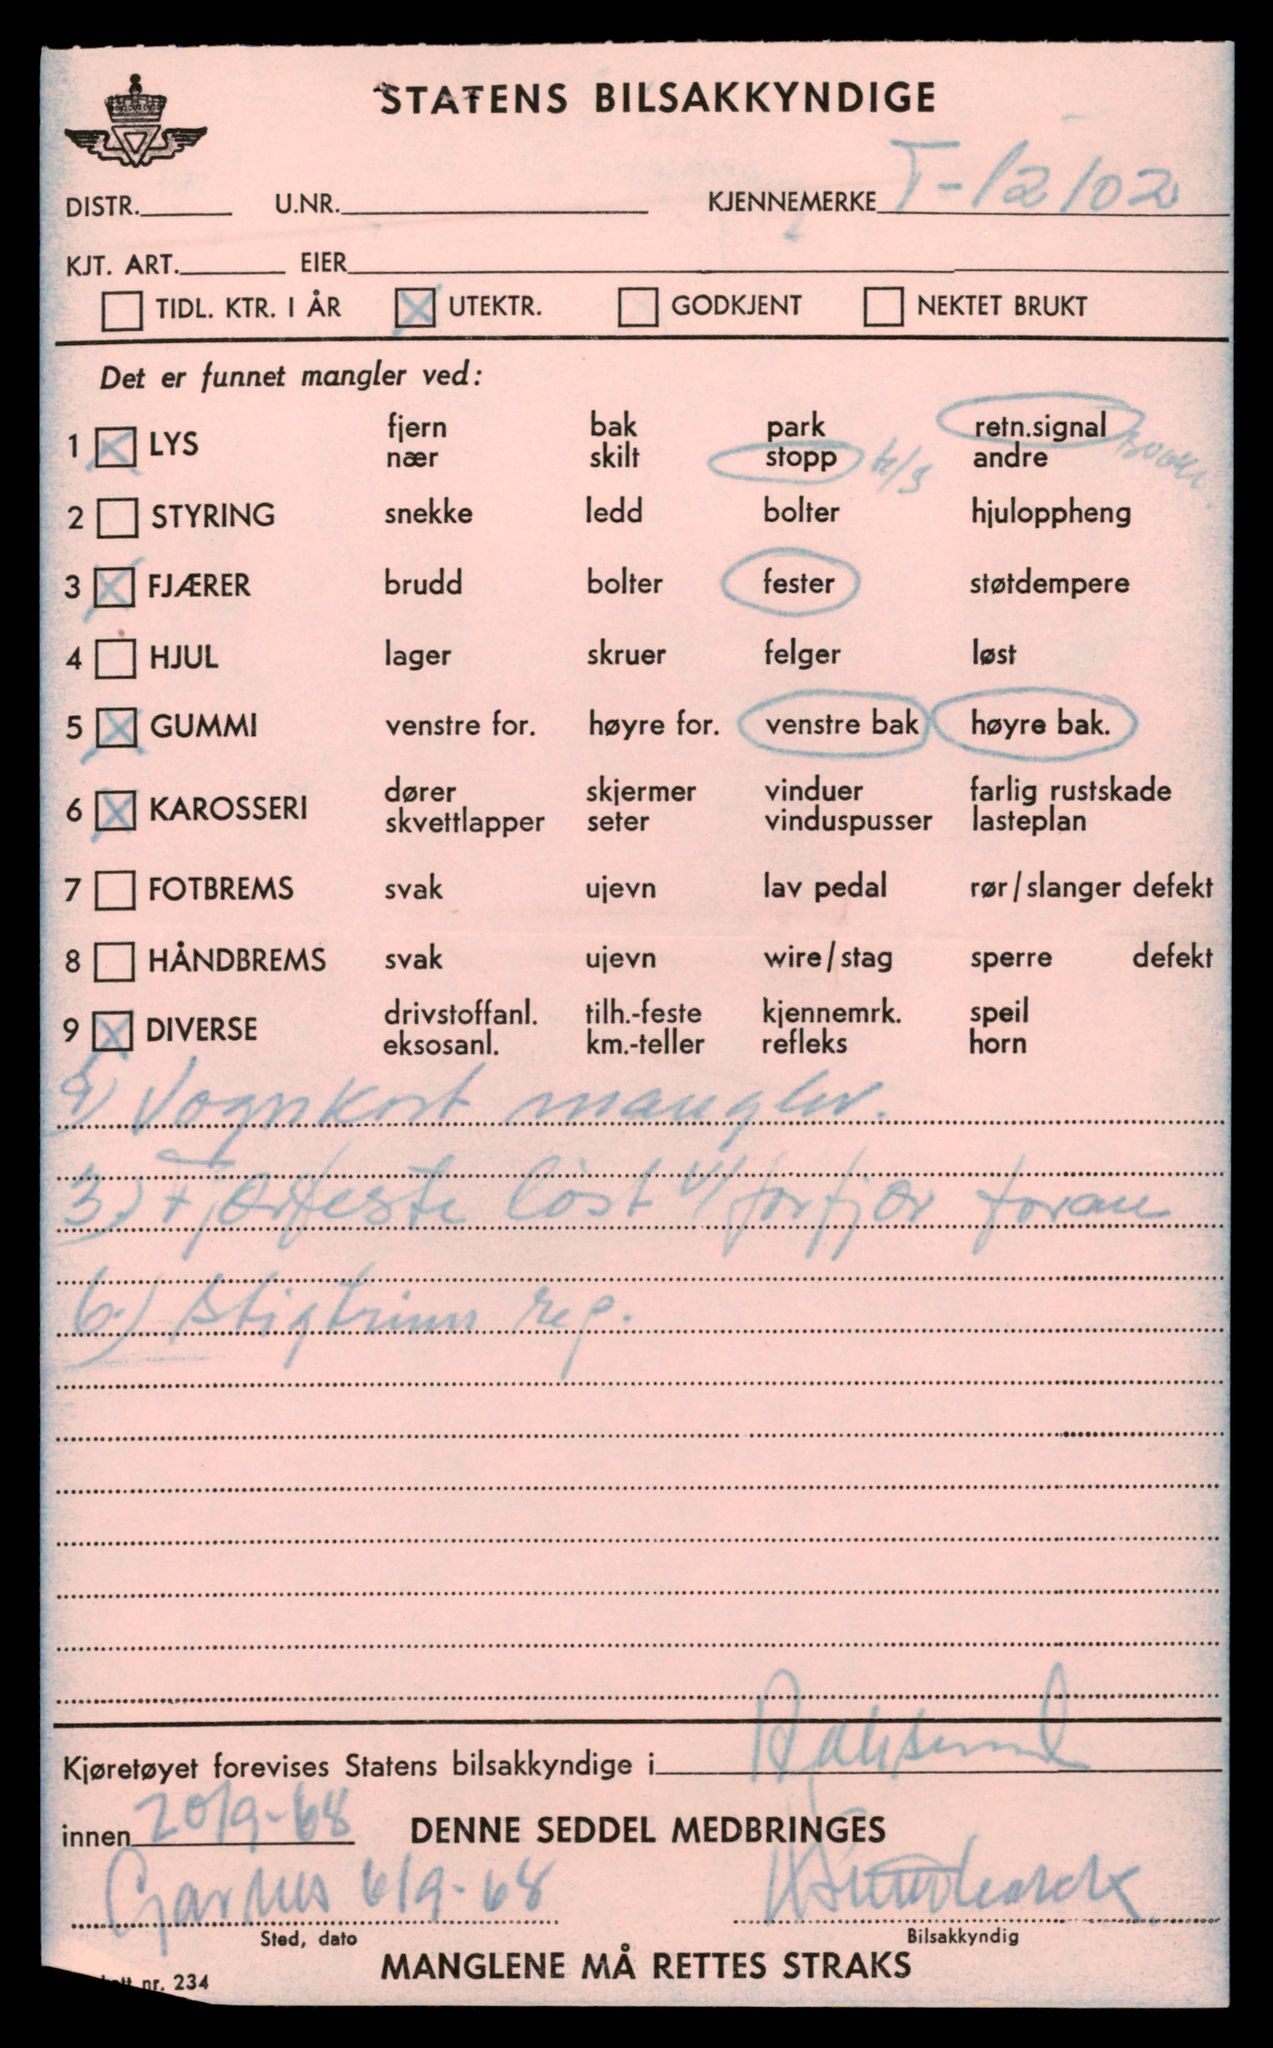 STATENS BILSAKKYNDIGE
DISTR. U.NR. KJENNEMERKE T-12102
KJT. ART. EIER
TIDL. KTR. I ÅR UTEKTR. GODKJENT NEKTET BRUKT
Det er funnet mangler ved:
fjern bak park retn.signal
1 LYS
nær skilt stopp h/s andre
2 STYRING snekke ledd bolter hjuloppheng
3 FJÆRER brudd bolter fester støtdempere
4 HJUL lager skruer felger løst
5 GUMMI venstre for. høyre for. venstre bak høyre bak.
dører skjermer vinduer farlig rustskade
6 KAROSSERI
skvettlapper seter vinduspusser lasteplan
7 FOTBREMS svak ujevn lav pedal rør/slanger defekt
8 HÅNDBREMS svak ujevn wire/stag sperre defekt
drivstoffanl. tilh.-feste kjennemrk. speil
9 DIVERSE
eksosanl. km.-teller refleks horn
9) Vognkort mangler.
3) Fjærfeste løst v/forfjær foran
6) Stigtrinn rep.
Kjøretøyet forevises Statens bilsakkyndige i
innen 20/9-68 DENNE SEDDEL MEDBRINGES
6/9-68
Sted, dato Bilsakkyndig
nr. 234 MANGLENE MÅ RETTES STRAKS